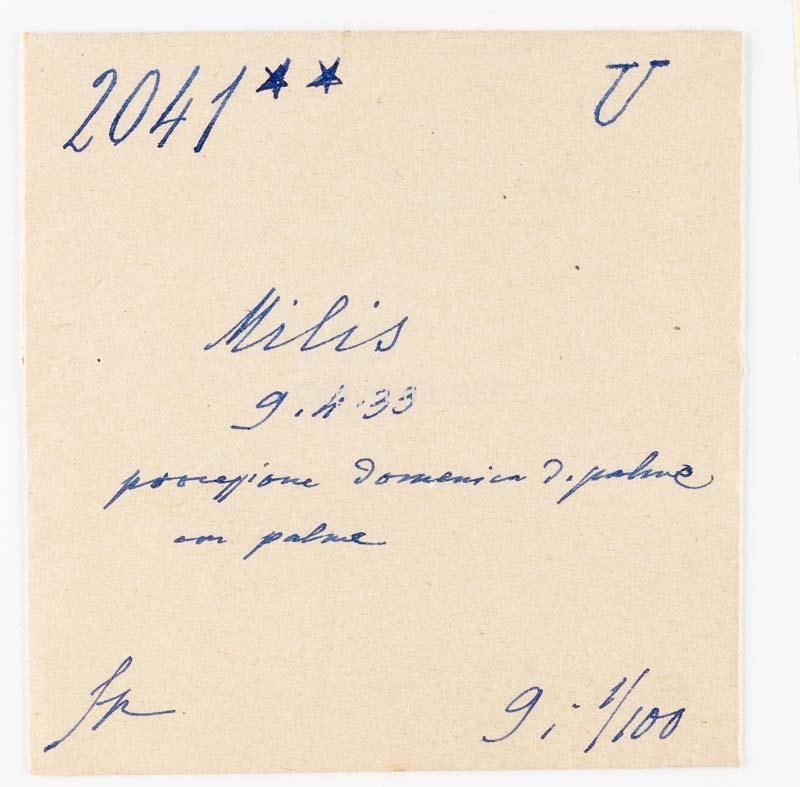 2041** U
Milis
9.4.33
processione domenica d. palme
con palme
Sp
9; 1/100